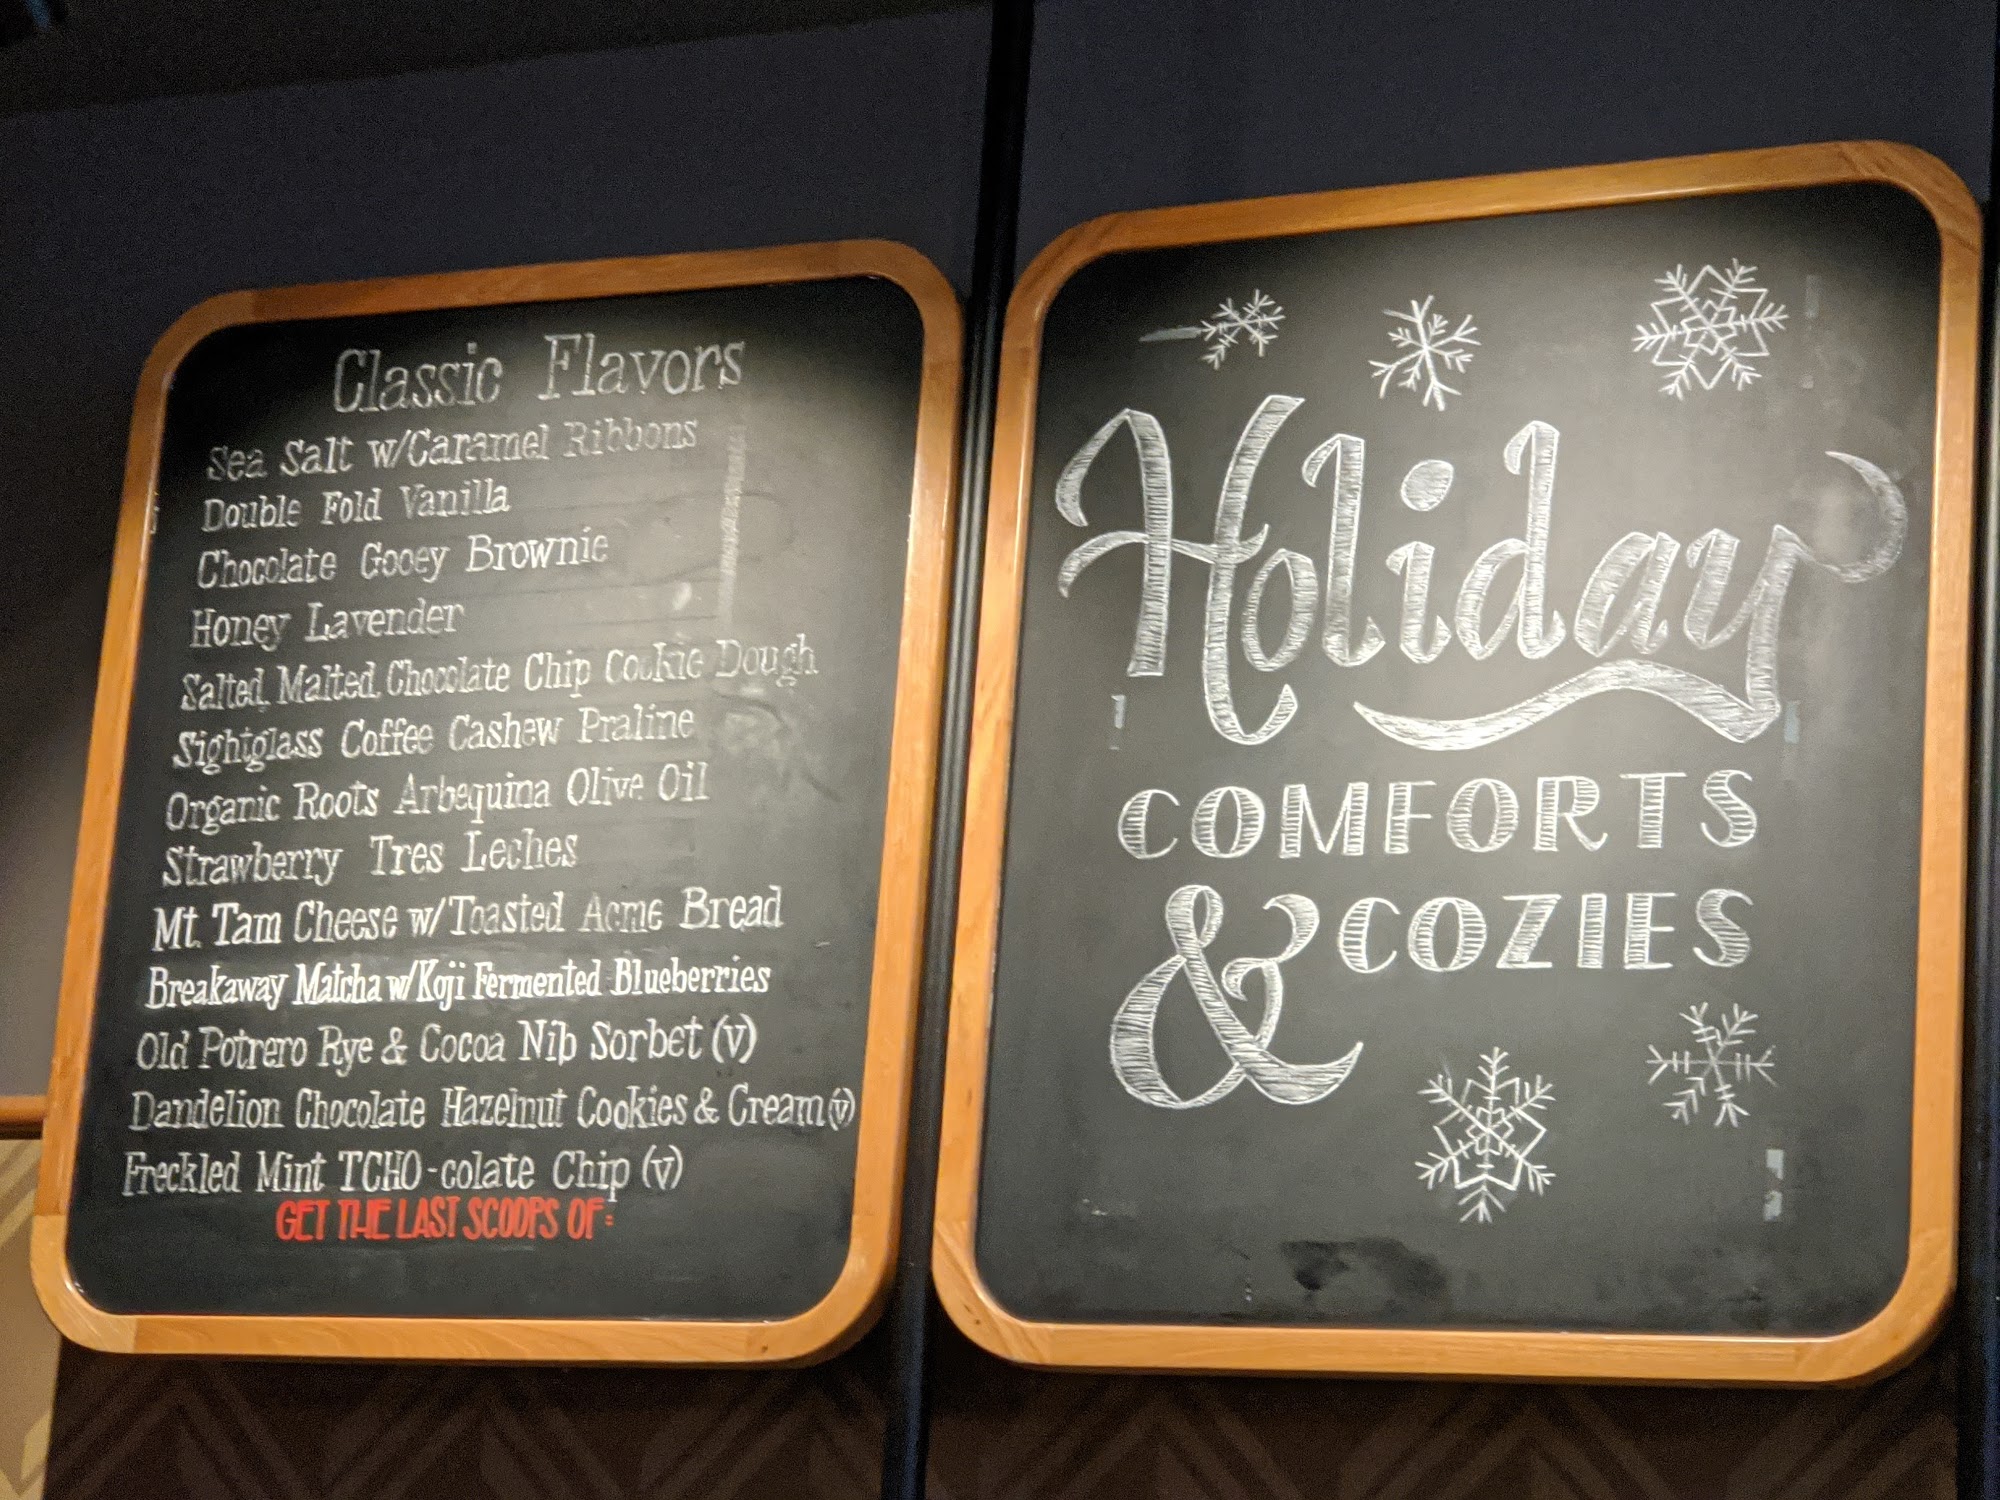 Classic Flavors
Sea Salt w/Caramel Ribbons
Double Fold Vanilla
Chocolate Gooey Brownie
Honey Lavender
Salted, Malted, Chocolate Chip Cookie Dough
Sightglass Coffee Cashew Praline
Organic Roots Arbequina Olive Oil
Strawberry Tres Leches
Mt. Tam Cheese w/Toasted Acme Bread
Breakaway Matcha w/Koji Fermented Blueberries
Old Potrero Rye & Cocoa Nib Sorbet (v)
Dandelion Chocolate Hazelnut Cookies & Cream (v)
Freckled Mint TCHO-colate Chip (v)
GET THE LAST SCOOPS OF:
Holiday
COMFORTS
& COZIES